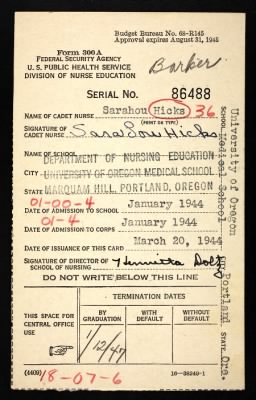 Budget Bureau No. 68-R145
Approval expires August 31, 1945
Form 300A
FEDERAL SECURITY AGENCY
U. S. PUBLIC HEALTH SERVICE
DIVISION OF NURSE EDUCATION
Barker
SERIAL NO. 86488
NAME OF CADET NURSE Sarahou Hicks 36
(PRINT OR TYPE)
SIGNATURE OF CADET NURSE Sara Lou Hicks
NAME OF SCHOOL DEPARTMENT OF NURSING EDUCATION
CITY UNIVERSITY OF OREGON MEDICAL SCHOOL
STATE MARQUAM HILL, PORTLAND, OREGON
01-00-4
DATE OF ADMISSION TO SCHOOL January 1944
01-4
DATE OF ADMISSION TO CORPS January 1944
DATE OF ISSUANCE OF THIS CARD March 20, 1944
SIGNATURE OF DIRECTOR OF SCHOOL OF NURSING Henrietta Doltz
DO NOT WRITE BELOW THIS LINE
TERMINATION DATES
THIS SPACE FOR CENTRAL OFFICE USE
BY GRADUATION
WITH DEFAULT
WITHOUT DEFAULT
1/12/47
(4409)
18-07-6
16-38249-1
University of Oregon
SCHOOL Medical School
Portland
STATE Ore.